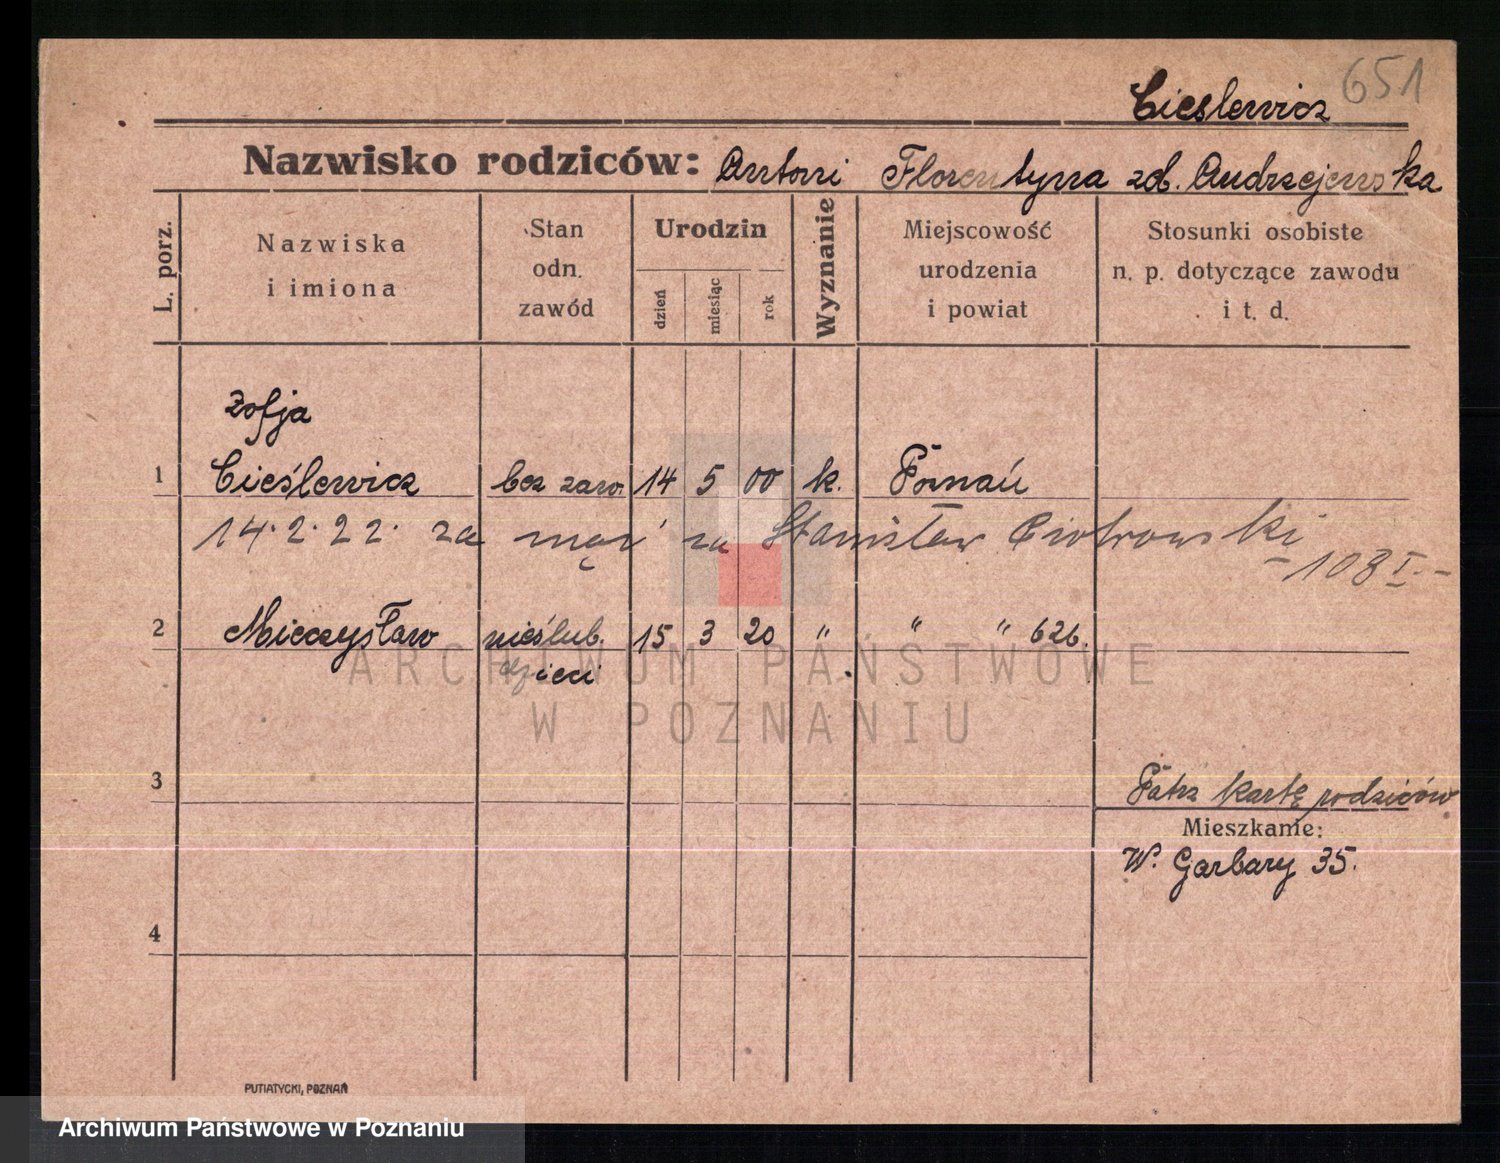 651
Cieslewicz
Nazwisko rodziców: Antoni Florentyna zd. Andrzejewska
L. porz.
Nazwiska
i imiona
Stan
odn.
zawód
Urodzin
dzień
miesiąc
rok
Wyznanie
Miejscowość
urodzenia
i powiat
Stosunki osobiste
n. p. dotyczące zawodu
i t. d.
Zofja
1 Cieślewicz bez zaw. 14 5 00 k. Poznań
14.2.22. za mąż za Stanisław Piotrowski
-108 I.-
2 Mieczysław nieślub. 15 3 20 " " " 626.
dzieci
ARCHIWUM PAŃSTWOWE
W POZNANIU
3
Patrz kartę rodziców
Mieszkanie:
W. Garbary 35.
4
PUTIATYCKI, POZNAŃ
Archiwum Państwowe w Poznaniu